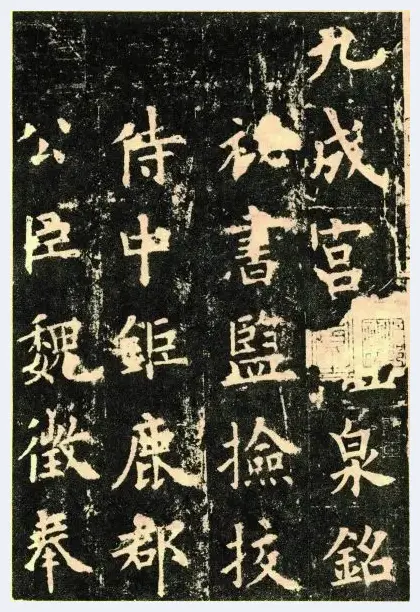 九成宫泉銘
祕書監撿挍
侍中鉅鹿郡
公臣魏徵奉